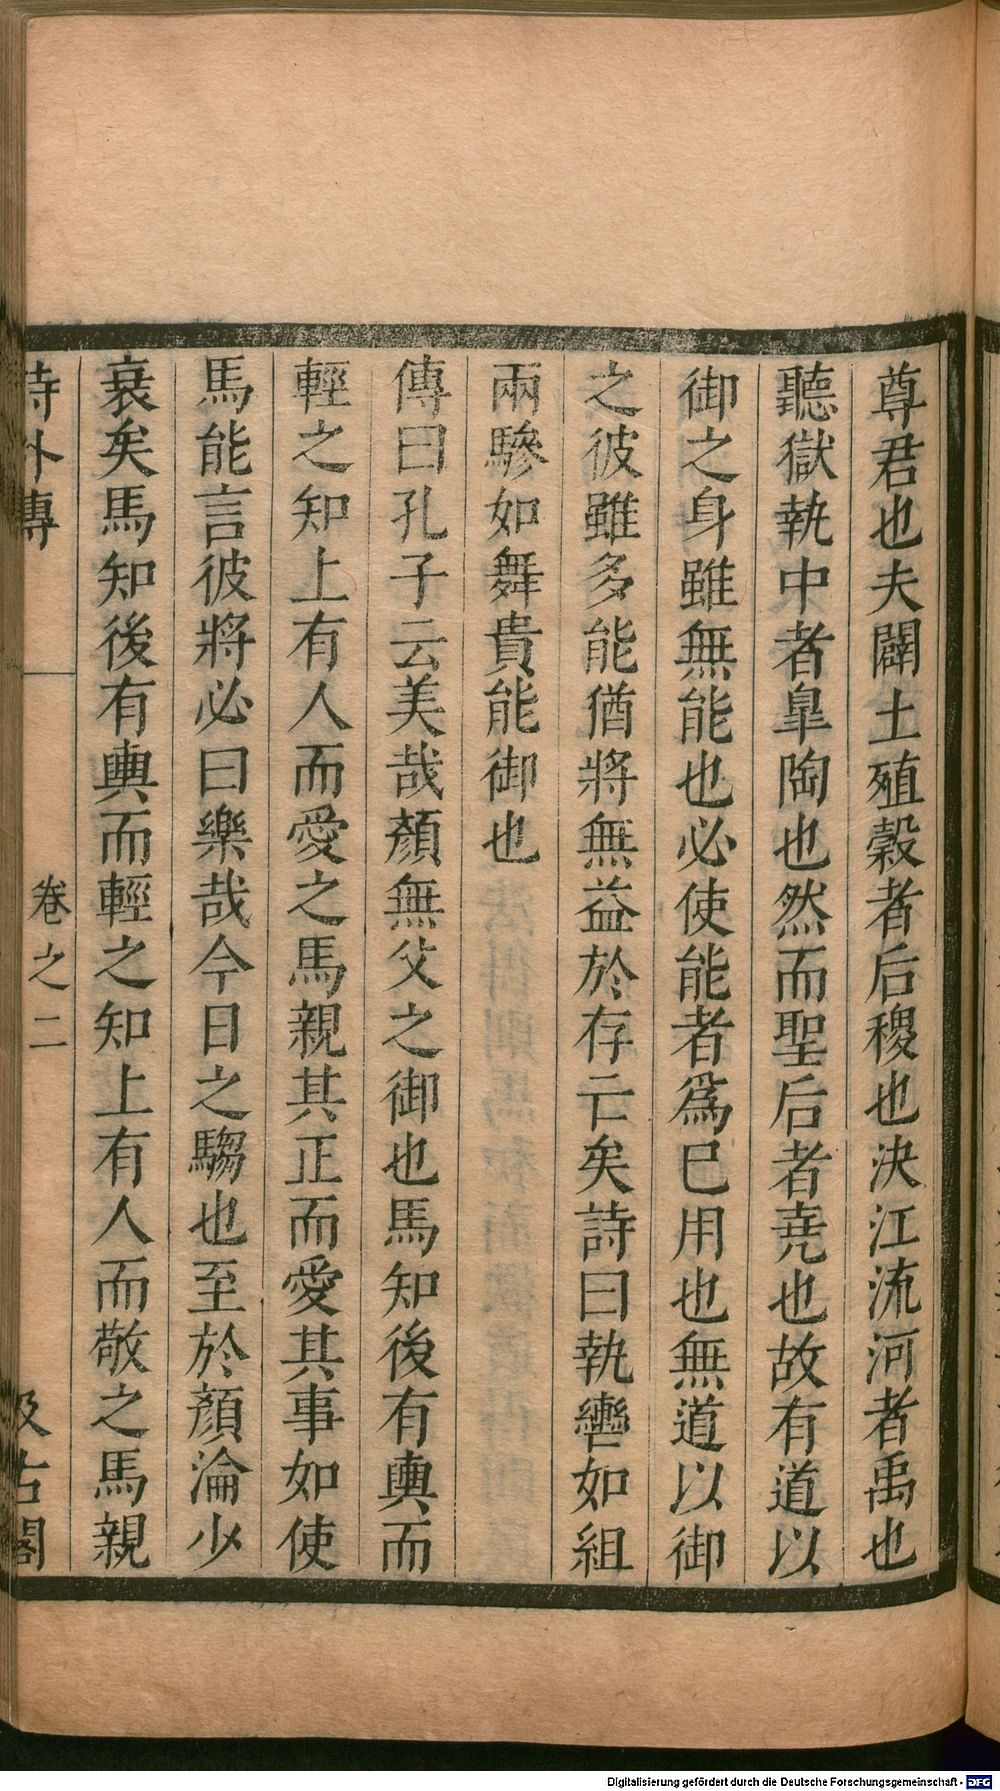 尊君也夫闢土殖穀者后稷也決江流河者禹也
聽獄執中者臯陶也然而聖后者堯也故有道以
御之身雖無能也必使能者爲巳用也無道以御
之彼雖多能猶將無益於存亡矣詩曰執轡如組
兩驂如舞貴能御也
傳曰孔子云美哉顏無父之御也馬知後有輿而
輕之知上有人而愛之馬親其正而愛其事如使
馬能言彼將必曰樂哉今日之騶也至於顏淪少
衰矣馬知後有輿而輕之知上有人而敬之馬親
詩外傳 卷之二 汲古閣
Digitalisierung gefördert durch die Deutsche Forschungsgemeinschaft - DFG